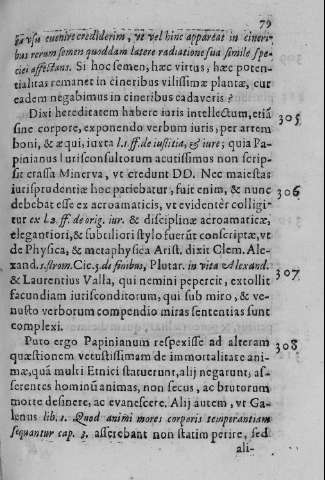 79
ga vsu euenire crediderim, vt vel hinc appareat in cineri
bus rerum semen quoddam latere radiatione sua simile spe-
ciei affectans. Si hoc semen, hæc virtus, hæc poten-
tialitas remanet in cineribus vilissimæ plantæ, cur
eadem negabimus in cineribus cadaveris?
Dixi hereditatem habere iuris intellectum, etiã 305
sine corpore, exponendo verbum iuris, per artem
boni, & æqui, iuxta l. 1. ff. de iustitia, & iure; quia Pa-
pinianus Iurisconsultorum acutissimus non scrip-
sit crassa Minerva, vt credunt DD. Nec maiestas
iurisprudentiæ hoc patiebatur, fuit enim, & nunc 306
debebat esse ex acroamaticis, vt evidentèr colligi-
tur ex l. 2. ff. de orig. iur. & disciplinæ acroamaticæ,
elegantiori, & subtiliori stylo fuerũt conscriptæ, vt
de Physica, & metaphysica Arist. dixit Clem. Ale-
xand. 1. strom. Cic. 5. de finibus, Plutar. in vita Alexand.
& Laurentius Valla, qui nemini pepercit, extollit 307
facundiam iurisconditorum, qui sub miro, & ve-
nusto verborum compendio miras sententias sunt
complexi.
Puto ergo Papinianum respexisse ad alteram 308
quæstionem vetustissimam de immortalitate ani-
mæ, quã multi Etnici statuerunt, alij negarunt; as-
serentes hominũ animas, non secus, ac brutorum
morte desinere, ac evanescere. Alij autem, vt Ga-
lenus lib. 1. Quod animi mores corporis temperantiam
sequantur cap. 3. asserebant non statim perire, sed
ali-